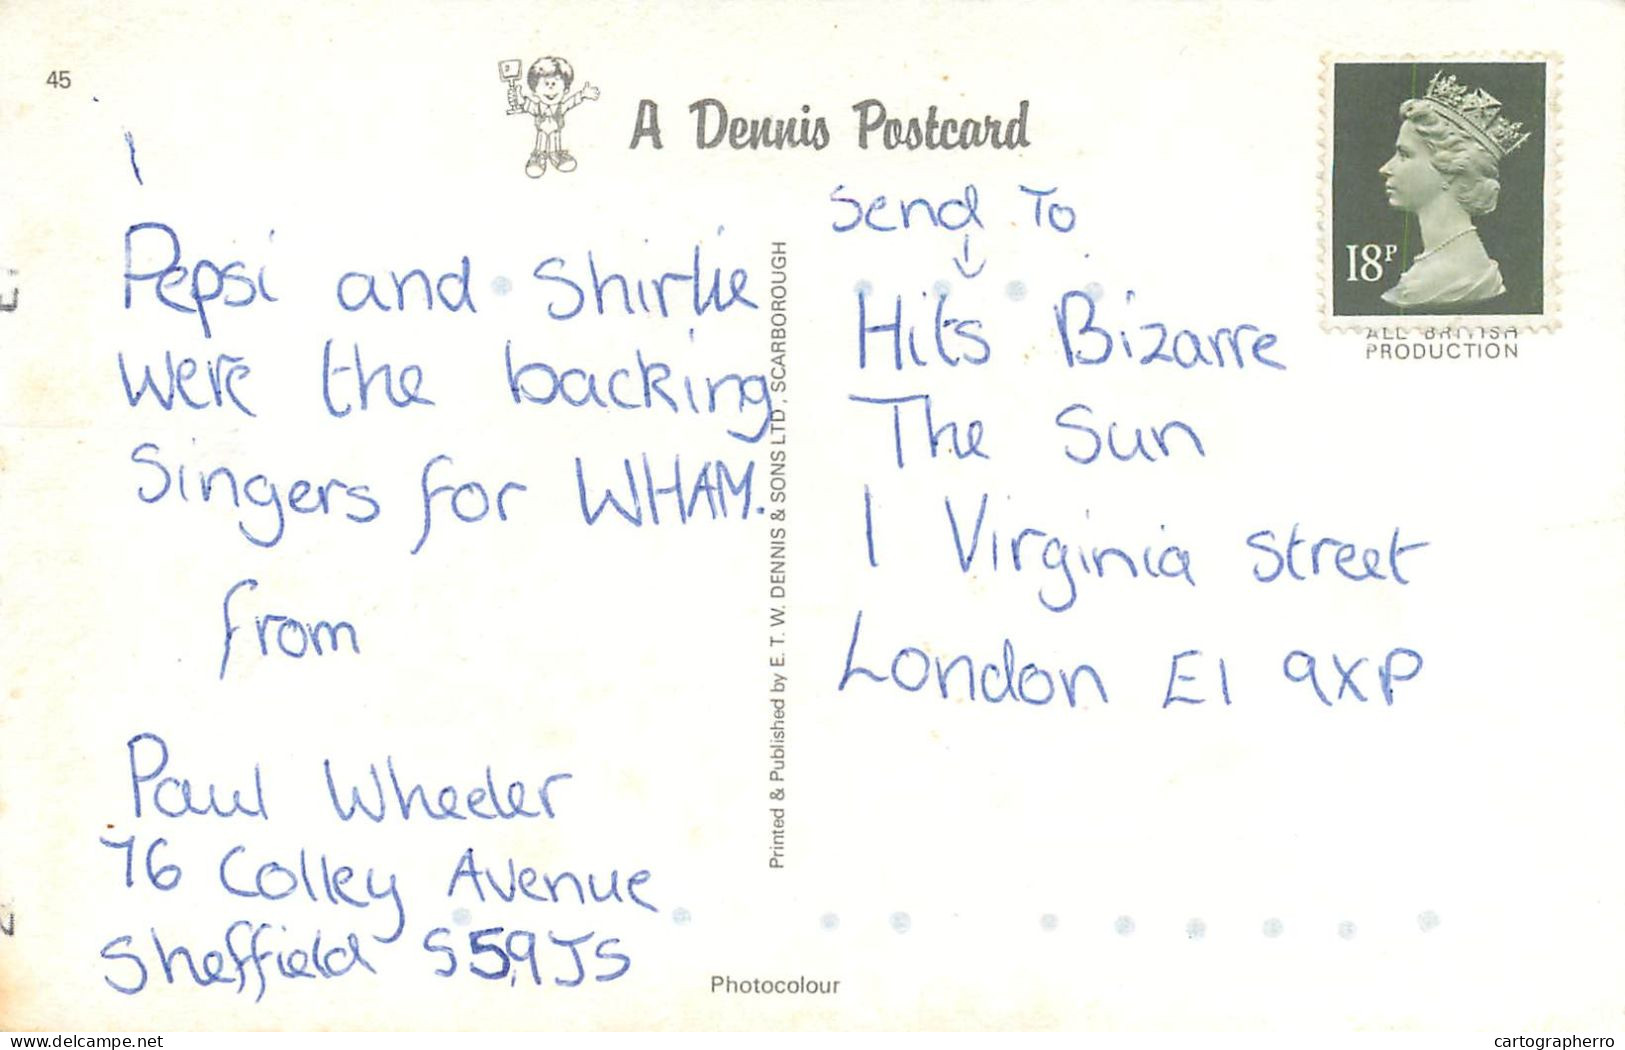 45
A Dennis Postcard
18P
ALL BRITISH
PRODUCTION
Pepsi and Shirlie
were the backing
Singers for WHAM.
from
Paul Wheeler
76 Colley Avenue
Sheffield S59JS
Printed & Published by E. T. W. DENNIS & SONS LTD, SCARBOROUGH
Send To
Hits Bizarre
The Sun
1 Virginia Street
London E1 9XP
Photocolour
delcampe.net
cartographerro